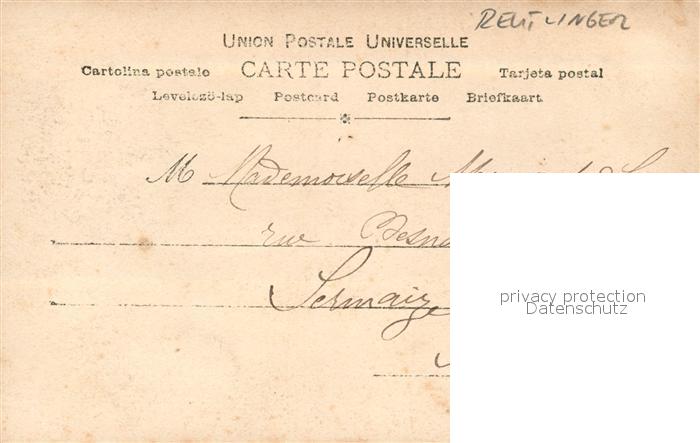 REUTLINGER
UNION POSTALE UNIVERSELLE
Cartolina postale CARTE POSTALE Tarjeta postal
Levelező-lap Postcard Postkarte Briefkaart
M Mademoiselle
rue
Sermaize
privacy protection
Datenschutz